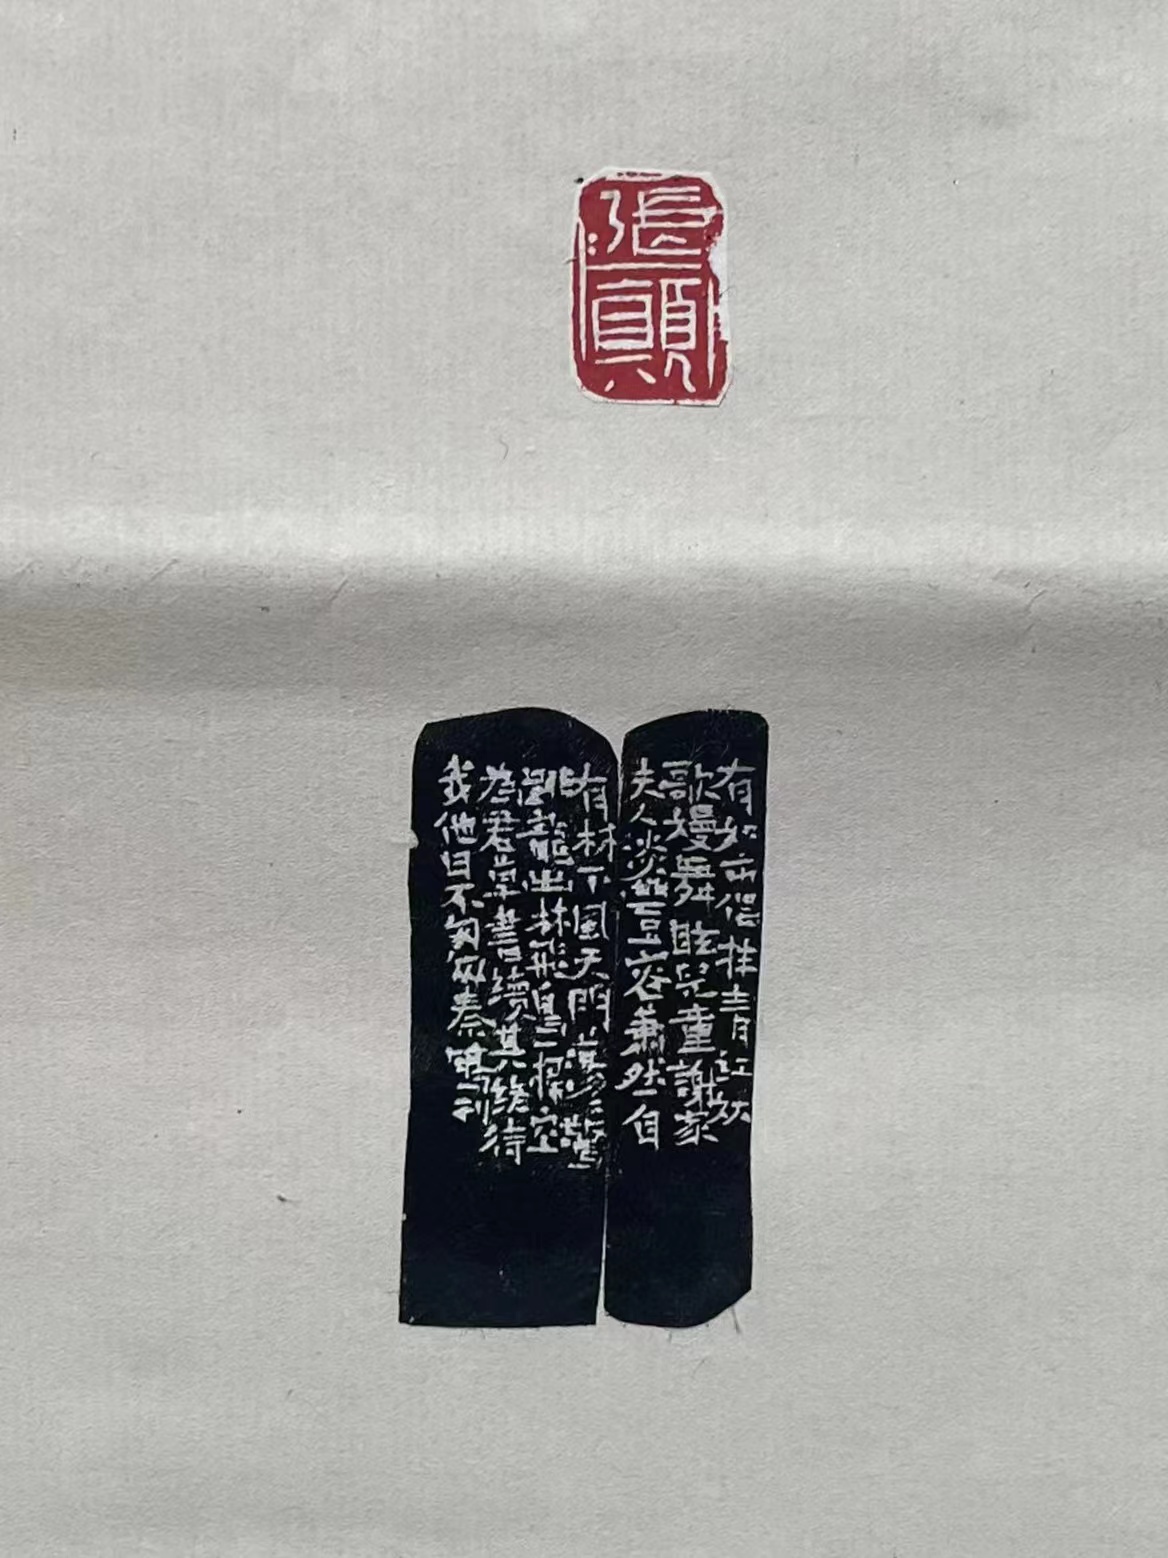 張顛
有如市倡抹青紅妖
歌嫚舞眩兒童謝家
夫人淡豐容蕭然自
有林下風天門蕩〻驚
龍出林飛鳥一掃空
為君草書續其終待
我他日不匆匆秦刻